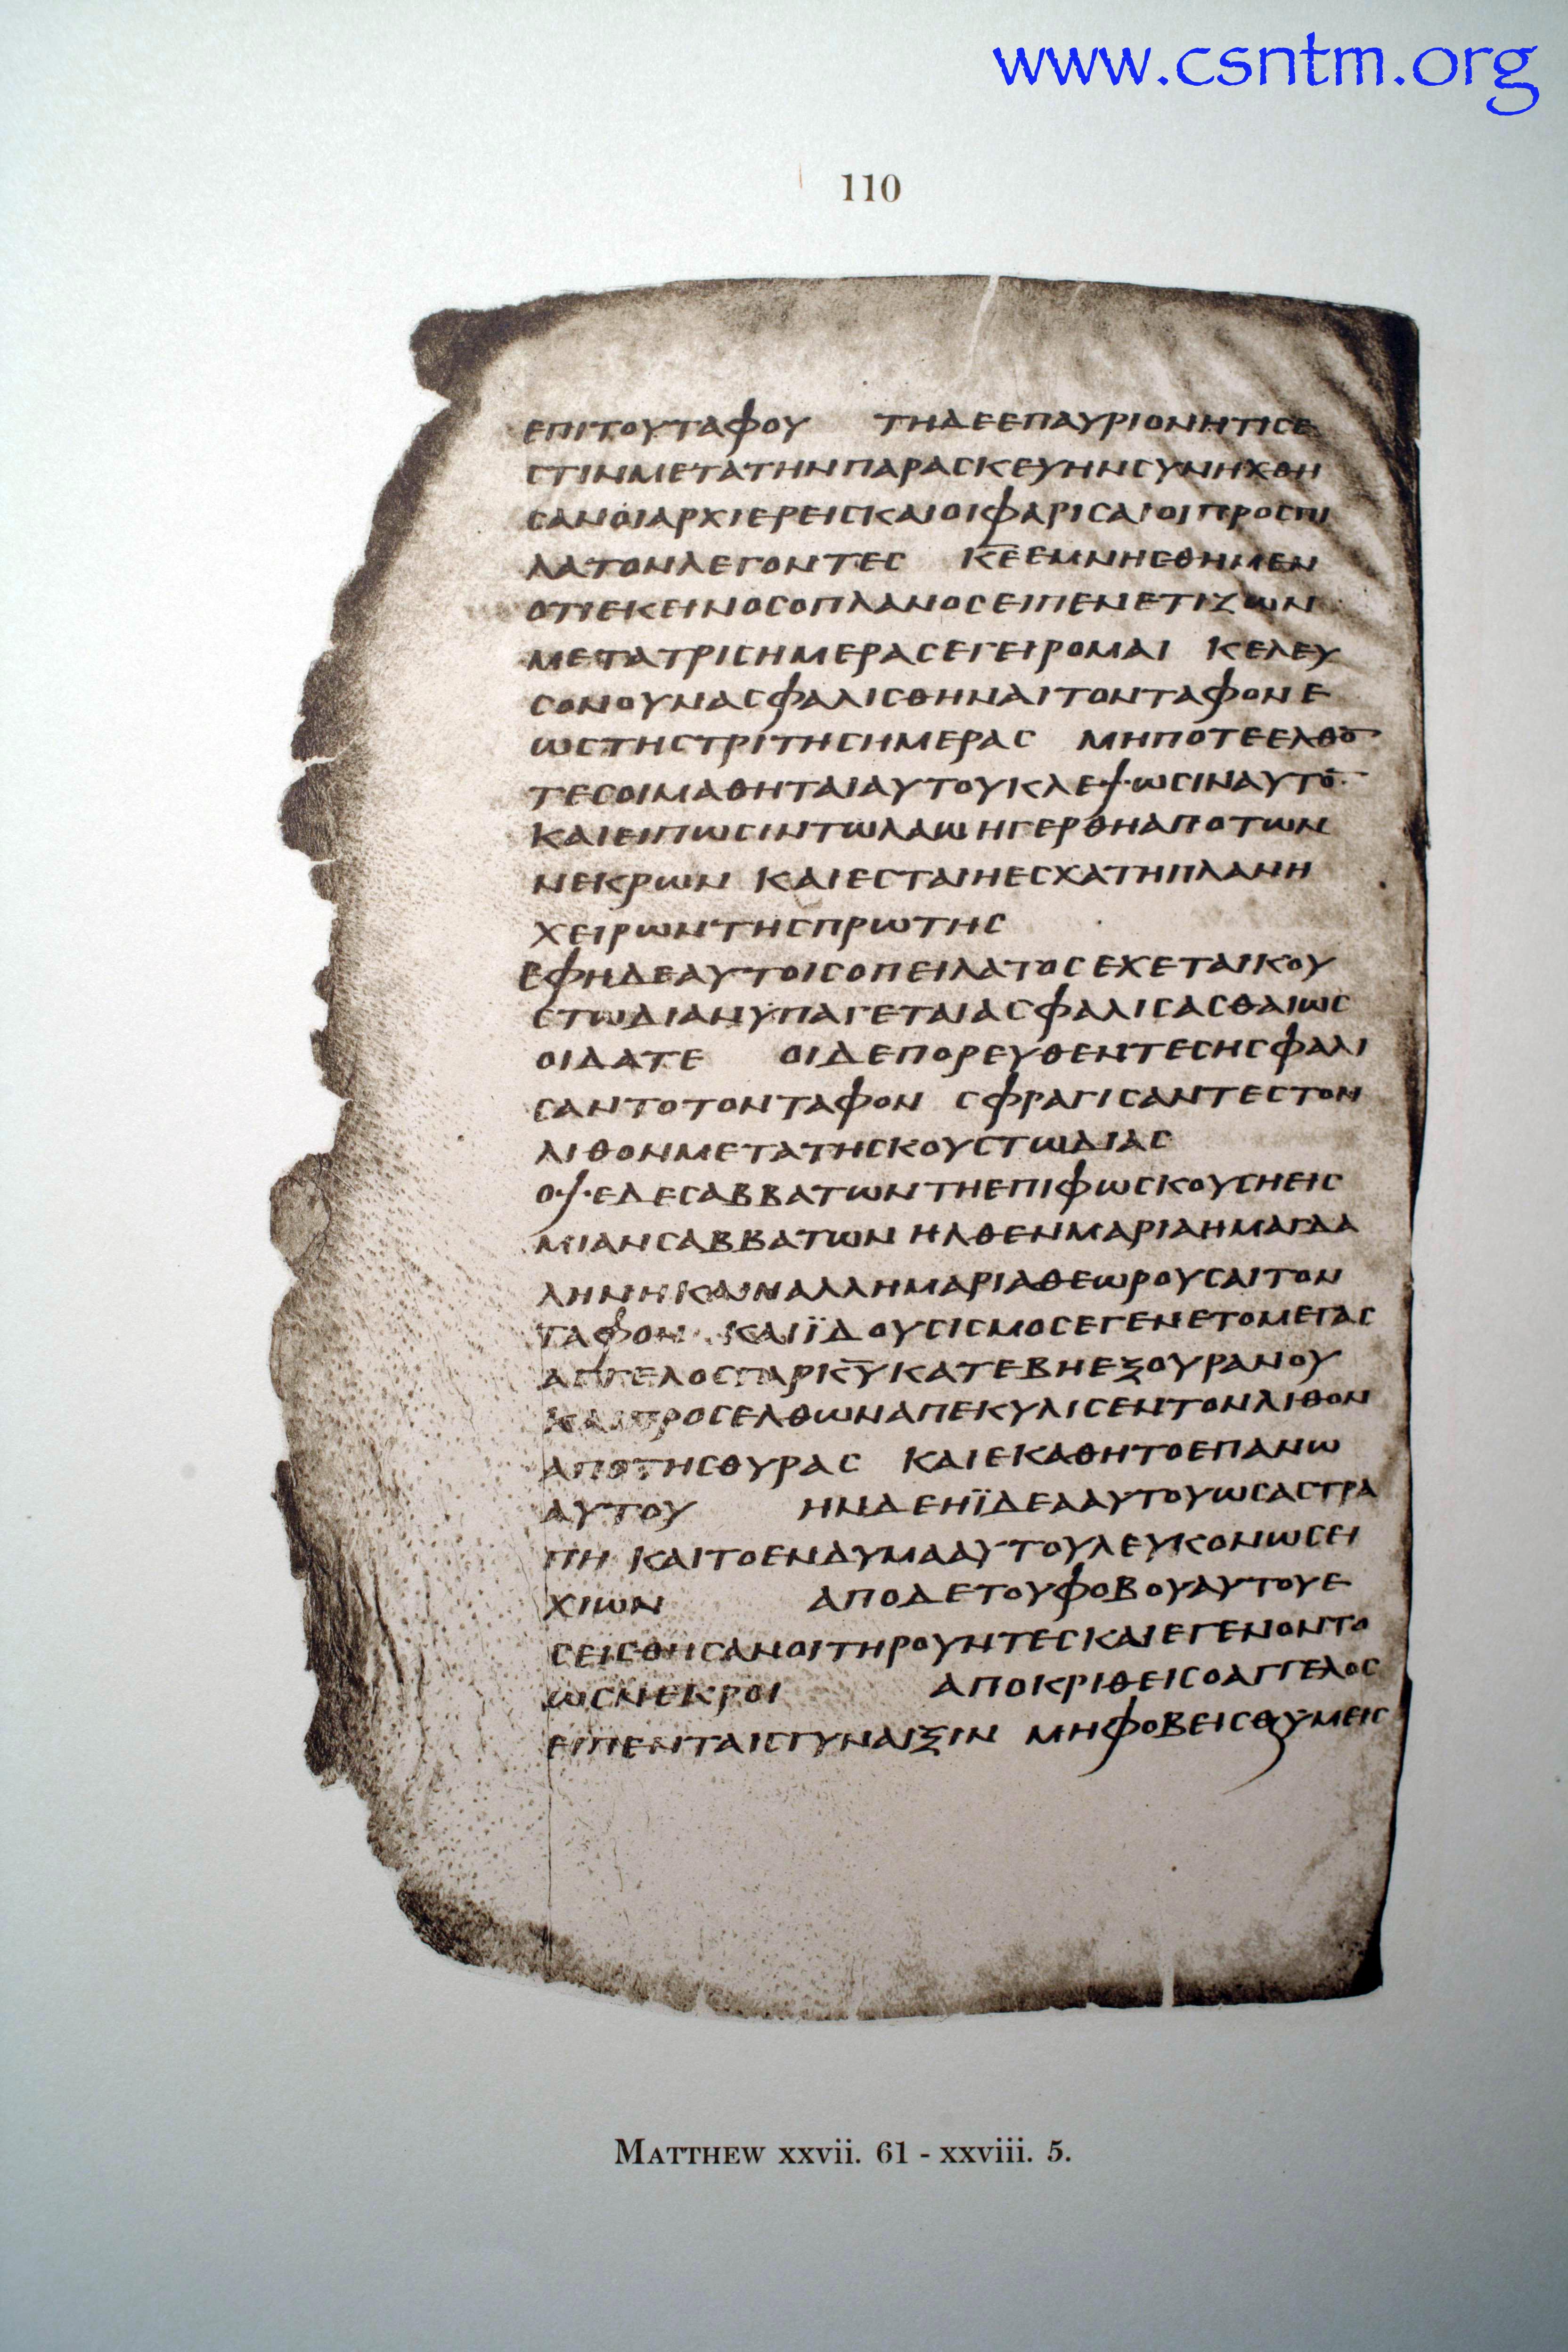 www.csntm.org
110
ΕΠΙΤΟΥΤΑΦΟΥ ΤΗΔΕΕΠΑΥΡΙΟΝΗΤΙCΕ
CΤΙΝΜΕΤΑΤΗΝΠΑΡΑCΚΕΥΗΝCΥΝΗΧΘΗ
CΑΝΟΙΑΡΧΙΕΡΕΙCΚΑΙΟΙΦΑΡΙCΑΙΟΙΠΡΟCΠΙ
ΛΑΤΟΝΛΕΓΟΝΤΕC Κ̅Ε̅ΕΜΝΗCΘΗΜΕΝ
ΟΤΙΕΚΕΙΝΟCΟΠΛΑΝΟCΕΙΠΕΝΕΤΙΖΩΝ
ΜΕΤΑΤΡΙCΗΜΕΡΑCΕΓΕΙΡΟΜΑΙ ΚΕΛΕΥ
CΟΝΟΥΝΑCΦΑΛΙCΘΗΝΑΙΤΟΝΤΑΦΟΝΕ
ΩCΤΗCΤΡΙΤΗCΗΜΕΡΑC ΜΗΠΟΤΕΕΛΘΟ̅
ΤΕCΟΙΜΑΘΗΤΑΙΑΥΤΟΥΚΛΕΨΩCΙΝΑΥΤΟ̅
ΚΑΙΕΙΠΩCΙΝΤΩΛΑΩΗΓΕΡΘΗΑΠΟΤΩΝ
ΝΕΚΡΩΝ ΚΑΙΕCΤΑΙΗΕCΧΑΤΗΠΛΑΝΗ
ΧΕΙΡΩΝΤΗCΠΡΩΤΗC
ΕΦΗΔΕΑΥΤΟΙCΟΠΕΙΛΑΤΟCΕΧΕΤΑΙΚΟΥ
CΤΩΔΙΑΝΫΠΑΓΕΤΑΙΑCΦΑΛΙCΑCΘΑΙΩC
ΟΙΔΑΤΕ ΟΙΔΕΠΟΡΕΥΘΕΝΤΕCΗCΦΑΛΙ
CΑΝΤΟΤΟΝΤΑΦΟΝ CΦΡΑΓΙCΑΝΤΕCΤΟΝ
ΛΙΘΟΝΜΕΤΑΤΗCΚΟΥCΤΩΔΙΑC
ΟΨΕΔΕCΑΒΒΑΤΩΝΤΗΕΠΙΦΩCΚΟΥCΗΕΙC
ΜΙΑΝCΑΒΒΑΤΩΝ ΗΛΘΕΝΜΑΡΙΑΗΜΑΓΔΑ
ΛΗΝΗΚΑΙΗΑΛΛΗΜΑΡΙΑΘΕΩΡΟΥCΑΙΤΟΝ
ΤΑΦΟΝ ΚΑΙΪΔΟΥCΙCΜΟCΕΓΕΝΕΤΟΜΕΓΑC
ΑΓΓΕΛΟCΓΑΡΚ̅Υ̅ΚΑΤΕΒΗΕΞΟΥΡΑΝΟΥ
ΚΑΙΠΡΟCΕΛΘΩΝΑΠΕΚΥΛΙCΕΝΤΟΝΛΙΘΟΝ
ΑΠΟΤΗCΘΥΡΑC ΚΑΙΕΚΑΘΗΤΟΕΠΑΝΩ
ΑΥΤΟΥ ΗΝΔΕΗΪΔΕΑΑΥΤΟΥΩCΑCΤΡΑ
ΠΗ ΚΑΙΤΟΕΝΔΥΜΑΑΥΤΟΥΛΕΥΚΟΝΩCΕΙ
ΧΙΩΝ ΑΠΟΔΕΤΟΥΦΟΒΟΥΑΥΤΟΥΕ
CΕΙCΘΗCΑΝΟΙΤΗΡΟΥΝΤΕCΚΑΙΕΓΕΝΟΝΤΟ
ΩCΝΕΚΡΟΙ ΑΠΟΚΡΙΘΕΙCΟΑΓΓΕΛΟC
ΕΙΠΕΝΤΑΙCΓΥΝΑΙΞΙΝ ΜΗΦΟΒΕΙCΘΑΙΥΜΕΙC
MATTHEW xxvii. 61 - xxviii. 5.